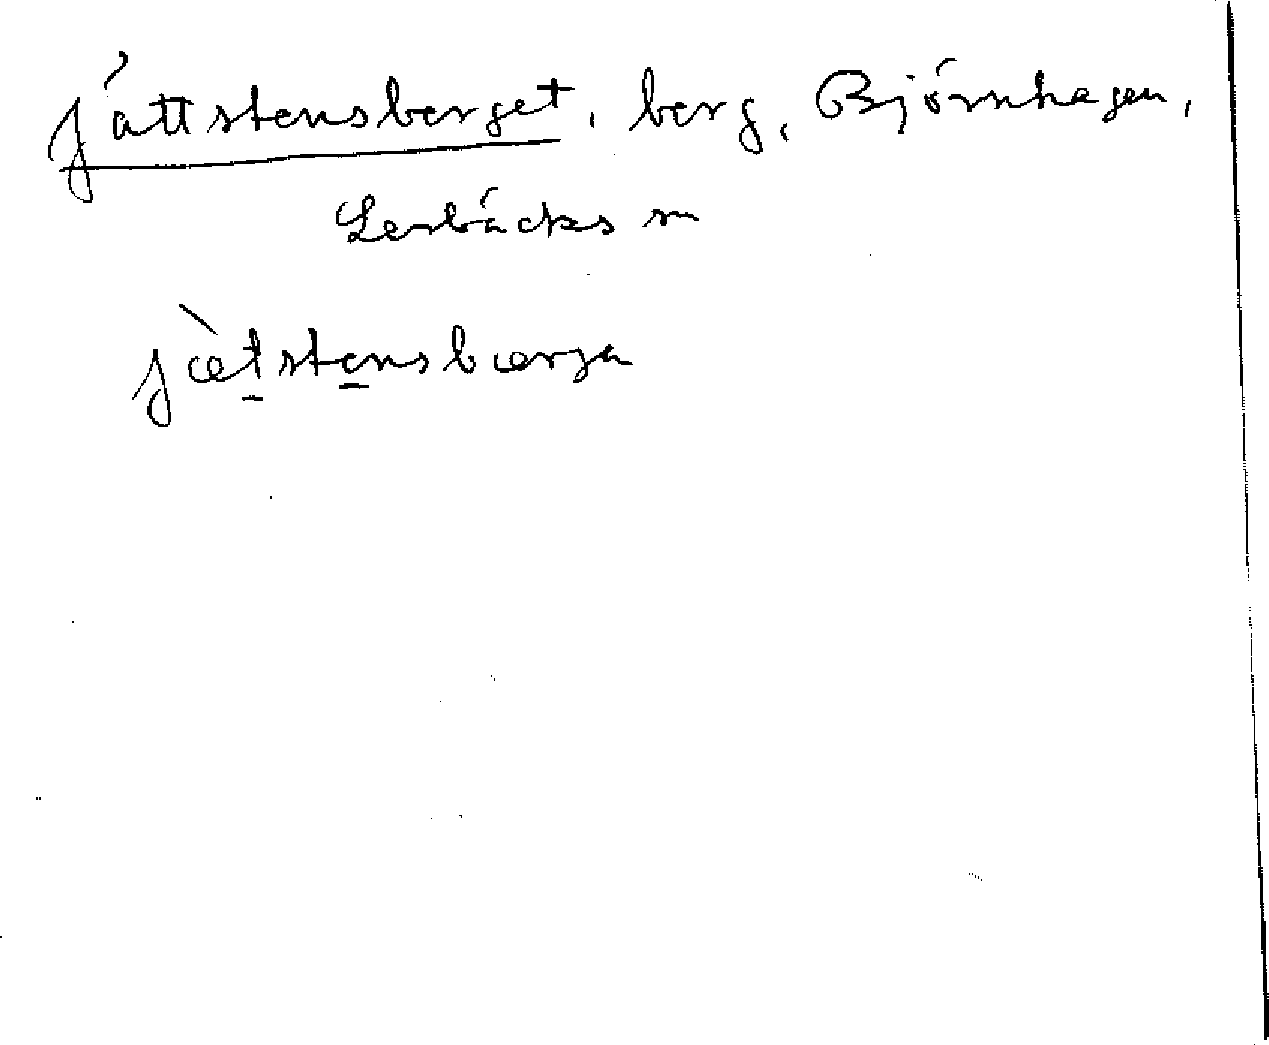 Jättstensberget, berg, Björnhagen,
Lerbäcks sn
jæ̀tstensbærja